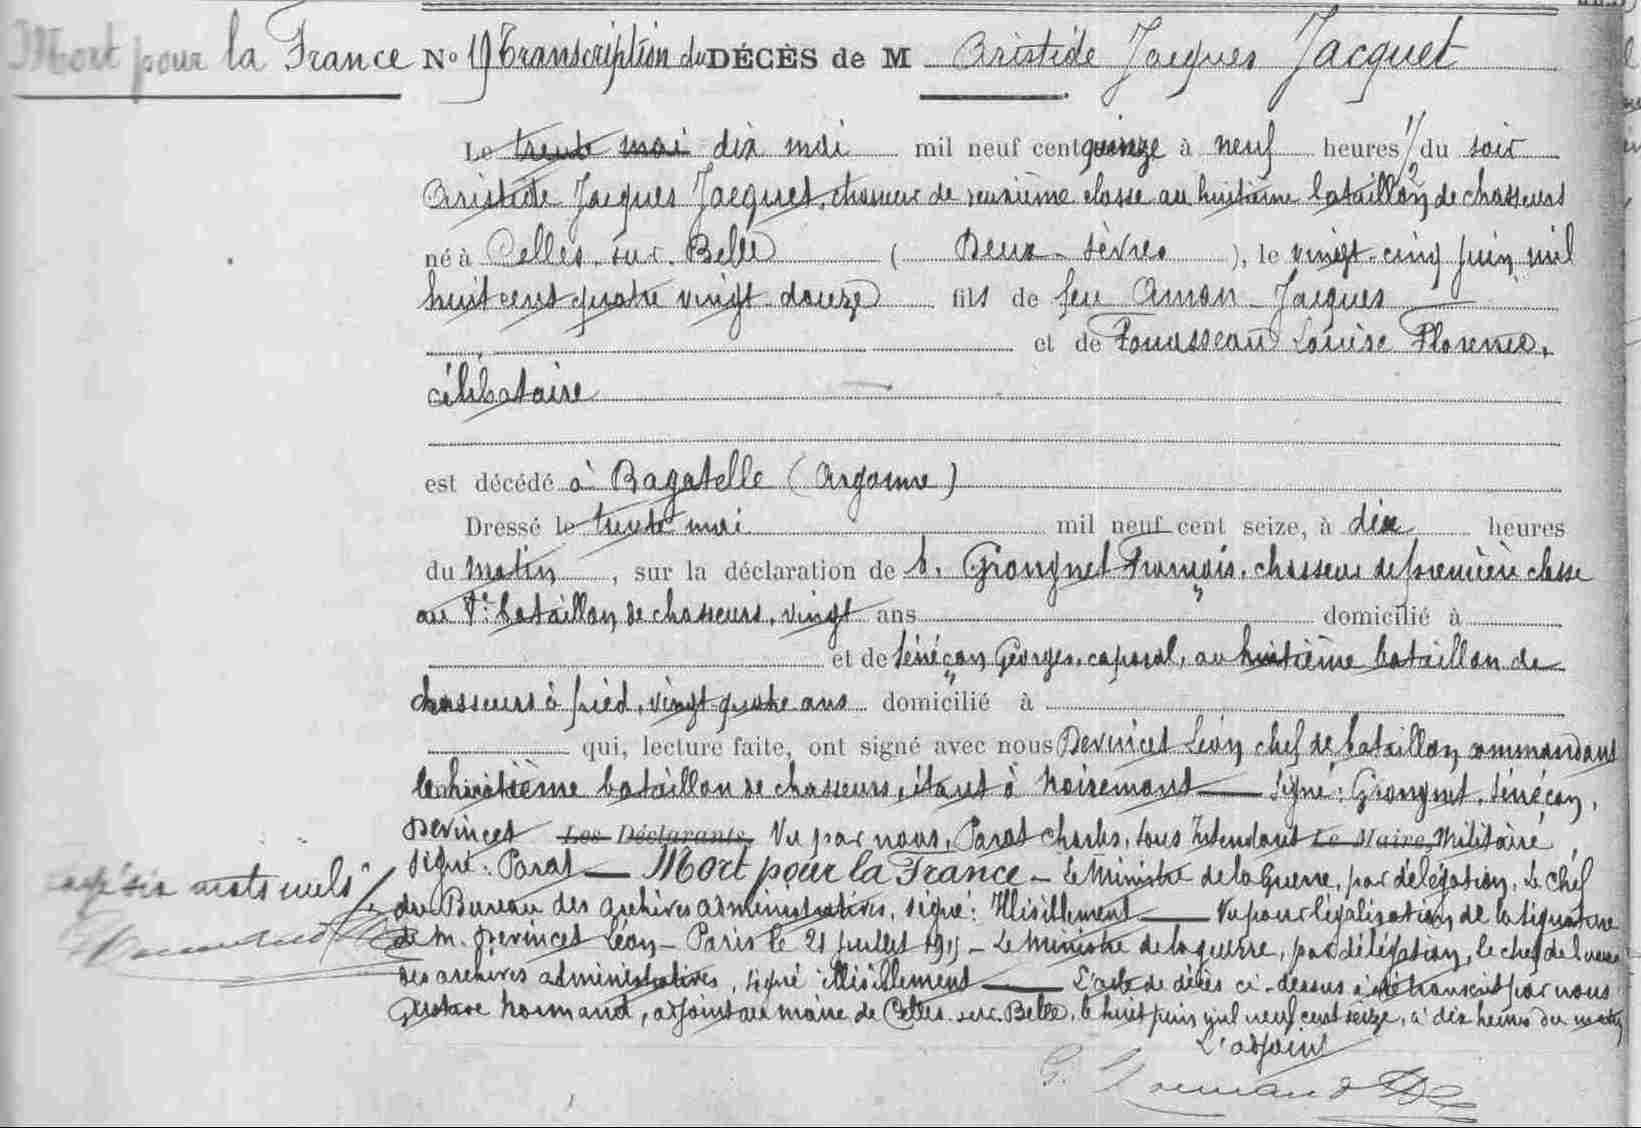 Mort pour la France No 19 Transcription du DÉCÈS de M Aristide Jacques Jacquet
Le trente mai dix mai mil neuf cent quinze à neuf heures 1/2 du soir
Aristide Jacques Jacquet, chasseur de deuxième classe au huitième bataillon de chasseurs
né à Celles-sur-Belle ( Deux-Sèvres ), le vingt-cinq juin mil
huit cent quatre vingt-douze fils de feu Aman Jacques
et de Pouasseau Louise Florence,
célibataire
est décédé à Bagatelle (Argonne)
Dressé le trente mai mil neuf cent seize, à dix heures
du matin, sur la déclaration de Grongnet François, chasseur de première classe
au 8e bataillon de chasseurs, vingt ans domicilié à
et de Sénéçon Georges, caporal, au huitième bataillon de
chasseurs à pied, vingt-quatre ans domicilié à
qui, lecture faite, ont signé avec nous Devincet Léon chef de bataillon commandant
le huitième bataillon de chasseurs, étant à Noiremont — Signé : Grongnet, Sénéçon,
Devincet Les Déclarants, Vu par nous, Parat Charles, sous Intendant Le Maire, Militaire,
signé : Parat — Mort pour la France — Le Ministre de la Guerre, par délégation, Le chef
du Bureau des archives administratives, signé : Illisiblement — Vu pour légalisation de la signature
rayé six mots nuls
de M. Devincet Léon — Paris le 21 juillet 1915 — Le Ministre de la guerre, par délégation, le chef de bureau
des archives administratives, signé illisiblement — L'acte de décès ci-dessus a été transcrit par nous
Gustave Normand, adjoint au maire de Celles-sur-Belle, le huit juin mil neuf cent seize, à dix heures du matin
L'adjoint
G. Normand